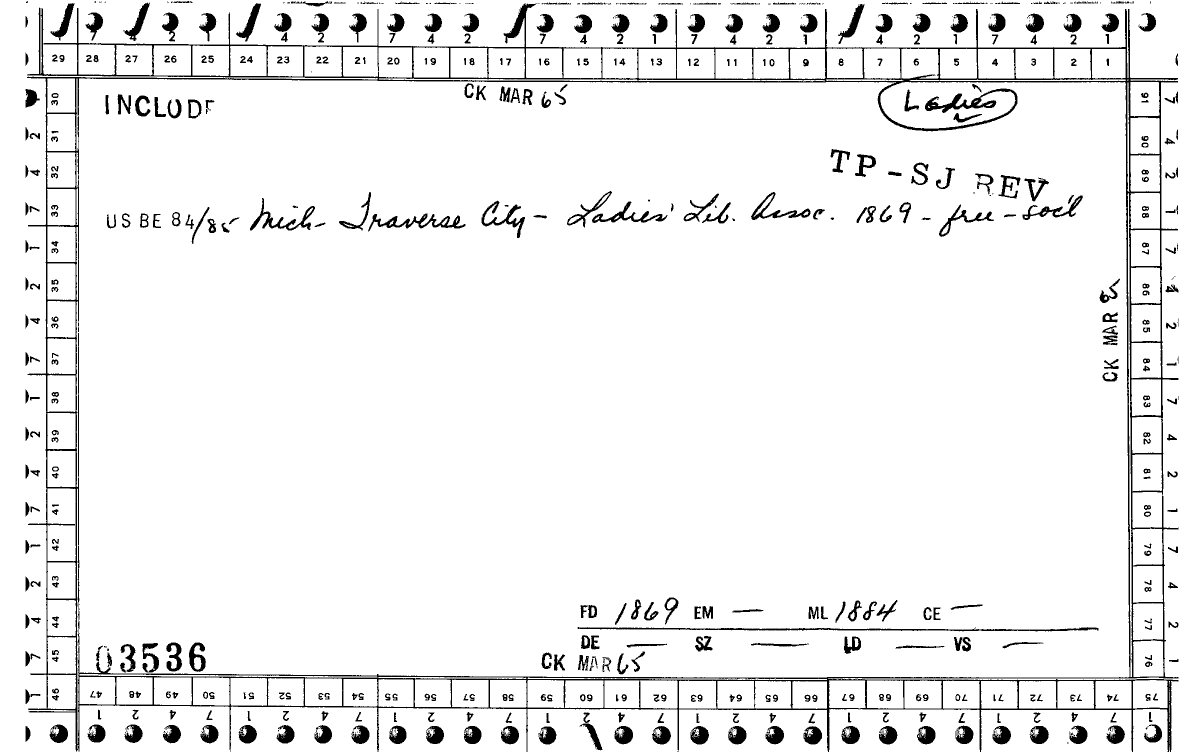 7 4 2 1 7 4 2 1 7 4 2 1 7 4 2 1 7 4 2 1 7 4 2 1 7 4 2 1
29 28 27 26 25 24 23 22 21 20 19 18 17 16 15 14 13 12 11 10 9 8 7 6 5 4 3 2 1
INCLUDE
CK MAR 65
Ladies
TP-SJ REV
US BE 84/85 Mich- Traverse City- Ladies' Lib. Assoc. 1869 - free - soc'l
CK MAR
FD 1869 EM — ML 1884 CE —
DE — SZ — LD — VS —
03536
CK MAR 65
30 31 32 33 34 35 36 37 38 39 40 41 42 43 44 45 46
91 90 89 88 87 86 85 84 83 82 81 80 79 78 77 76 75
47 48 49 50 51 52 53 54 55 56 57 58 59 60 61 62 63 64 65 66 67 68 69 70 71 72 73 74 75
1 2 4 7 1 2 4 7 1 2 4 7 1 2 4 7 1 2 4 7 1 2 4 7 1